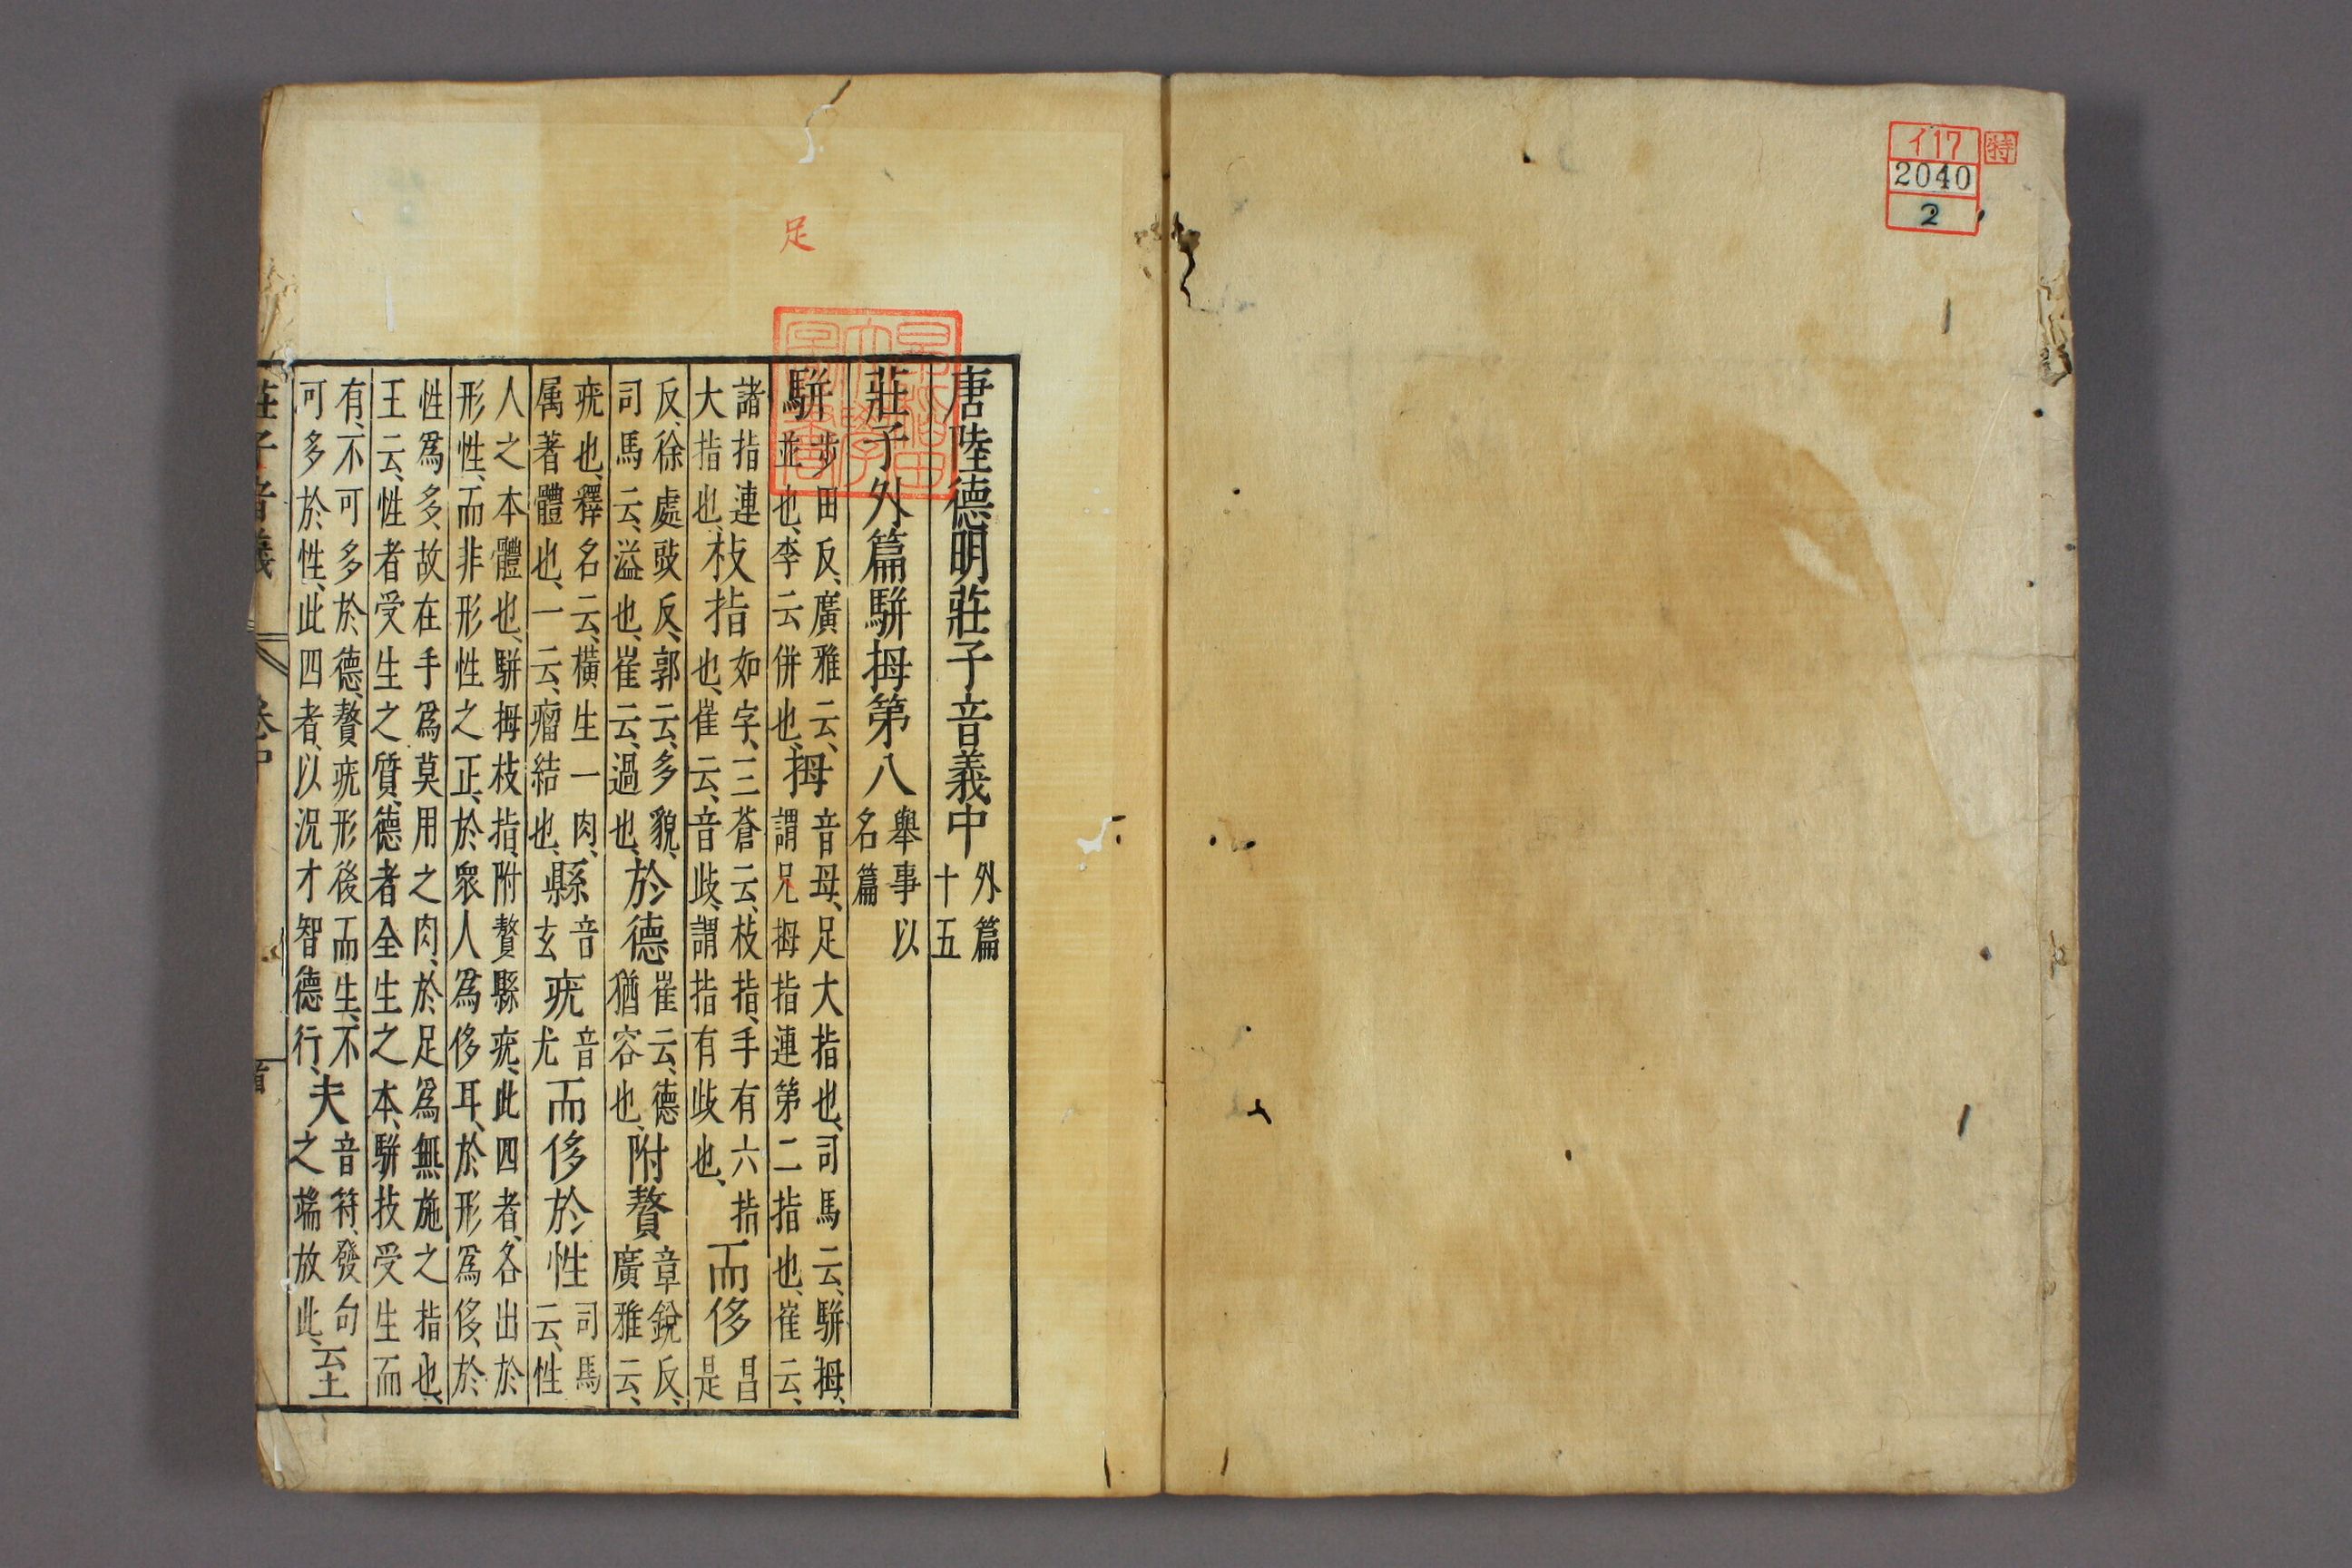 イ17
特
2040
2
足
早稻田大學圖書
唐陸德明莊子音義中外篇十五
莊子外篇駢拇第八舉事以名篇
駢步田反、廣雅云、並也、李云併也、拇音母、足大指也、司馬云、駢拇、謂兄拇指連第二指也、崔云、
諸指連大指也、枝指如字、三蒼云、枝指、手有六指也、崔云、音歧、謂指有歧也、而侈昌是
反、徐處豉反、郭云、多貌、司馬云、溢也、崔云、過也、於德崔云、德猶容也、附贅章銳反、廣雅云、
疣也、釋名云、橫生一肉、属著體也、一云、瘤結也、縣音玄疣音尤而侈於性司馬云、性
人之本體也、駢拇枝指、附贅縣疣、此四者、各出於形性、而非形性之正、於衆人爲侈耳、於形爲侈、於
性爲多、故在手爲莫用之肉、於足爲無施之指也、王云、性者受生之質、德者全生之本、駢技受生而
有、不可多於德、贅疣形後而生、不可多於性、此四者、以況才智德行、夫音符、發句之端放此、至
莊子音義 卷中